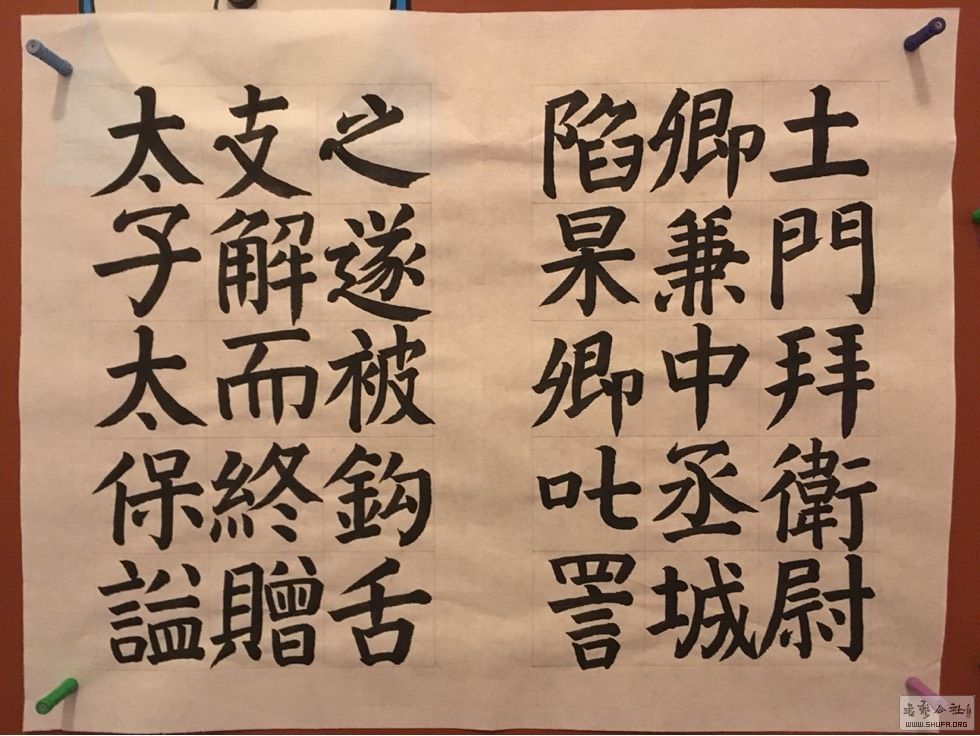 土門拜衛尉
卿兼中丞城
陷杲卿叱詈
之遂被鈎舌
支解而終贈
太子太保謚
WWW.SHUFA.ORG